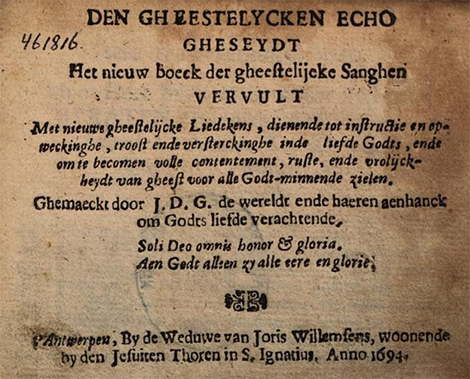 DEN GHEESTELYCKEN ECHO
461816.
GHESEYDT
Het nieuw boeck der gheestelijcke Sanghen
VERVULT
Met nieuwe gheestelijcke Liedekens, dienende tot instructie en op-
weckinghe, troost ende versterckinghe inde liefde Godts, ende
om te becomen volle contentement, ruste, ende vrolijck-
heydt van gheest voor alle Godt-minnende zielen.
Ghemaeckt door J. D. G. de wereldt ende haeren aenhanck
om Godts liefde verachtende.
Soli Deo omnis honor & gloria.
Aen Godt alleen zy alle eere en glorie.
t'Antwerpen, By de Weduwe van Joris Willemsens, woonende
by den Jesuiten Thoren in S. Ignatius. Anno 1694.